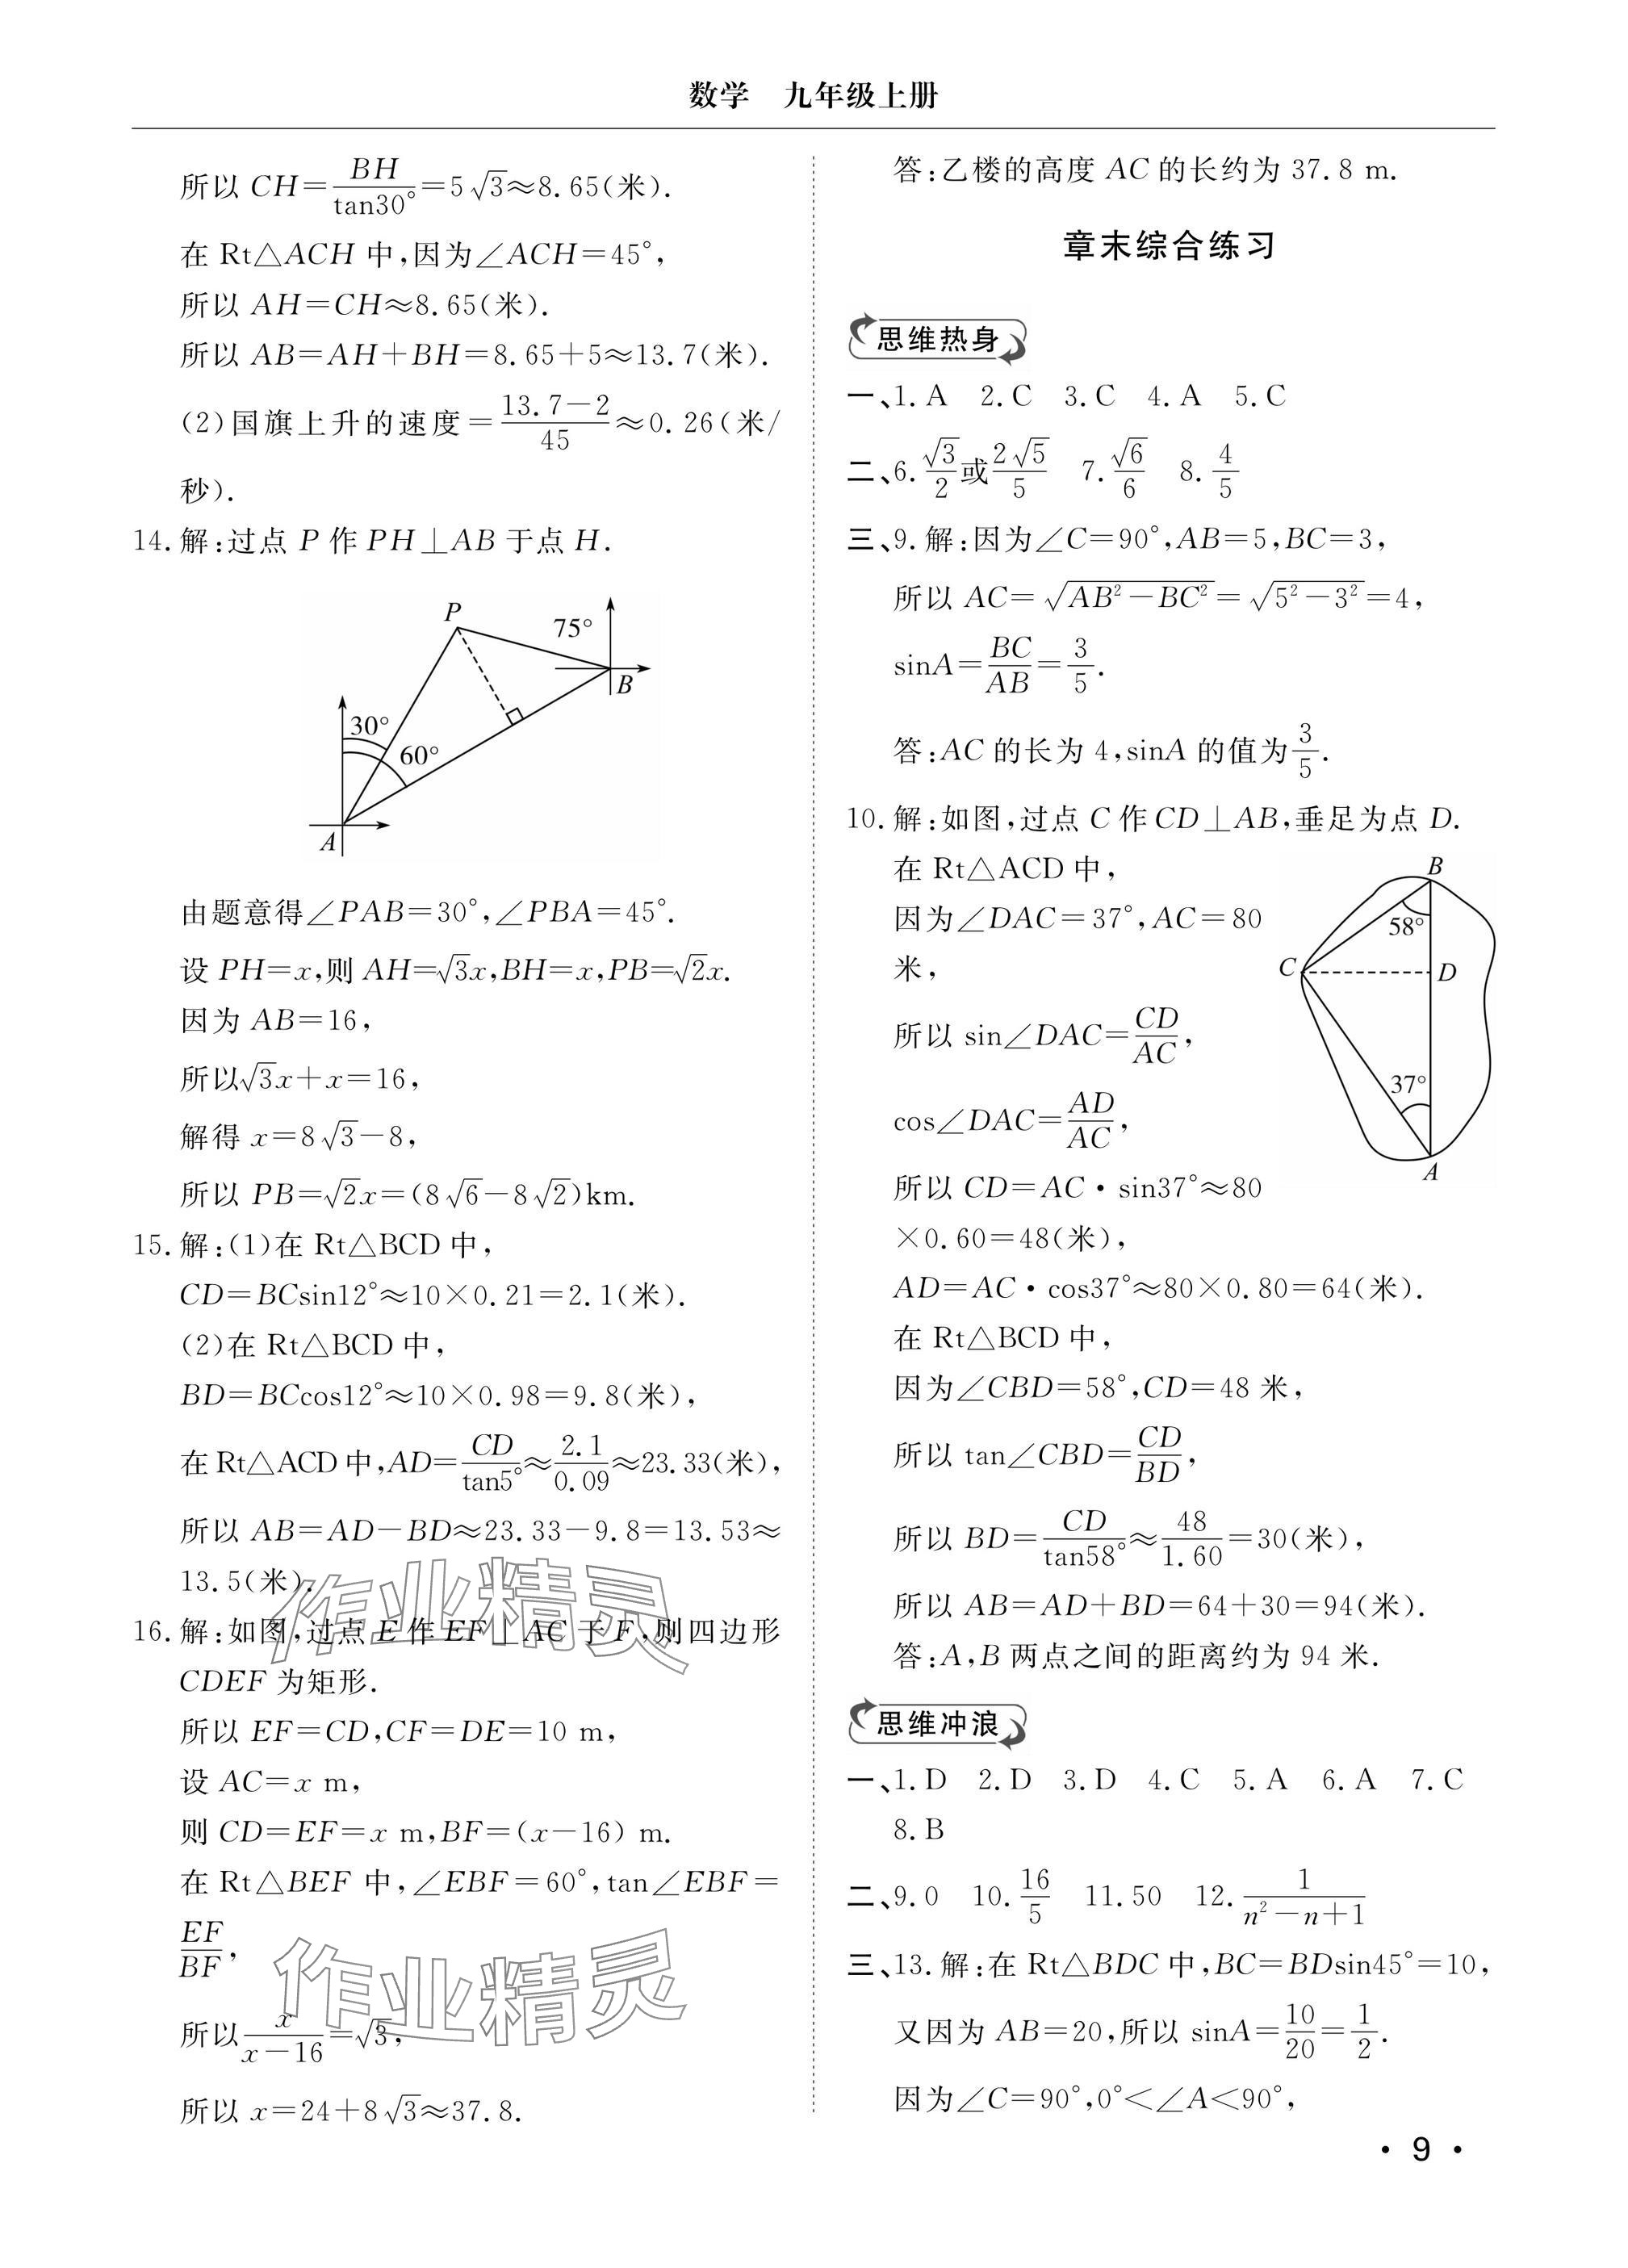 数学　九年级上册
所以 CH=BH/tan30°=5√3≈8.65(米).
在 Rt△ACH 中,因为∠ACH=45°,
所以 AH=CH≈8.65(米).
所以 AB=AH+BH=8.65+5≈13.7(米).
(2)国旗上升的速度=(13.7-2)/45≈0.26(米/
秒).
14.解:过点 P 作 PH⊥AB 于点 H.
P
75°
B
30°
60°
A
由题意得∠PAB=30°,∠PBA=45°.
设 PH=x,则 AH=√3x,BH=x,PB=√2x.
因为 AB=16,
所以√3x+x=16,
解得 x=8√3-8,
所以 PB=√2x=(8√6-8√2)km.
15.解:(1)在 Rt△BCD 中,
CD=BCsin12°≈10×0.21=2.1(米).
(2)在 Rt△BCD 中,
BD=BCcos12°≈10×0.98=9.8(米),
在 Rt△ACD 中,AD=CD/tan5°≈2.1/0.09≈23.33(米),
所以 AB=AD-BD≈23.33-9.8=13.53≈
13.5(米).
16.解:如图,过点 E 作 EF⊥AC 于 F,则四边形
CDEF 为矩形.
所以 EF=CD,CF=DE=10 m,
设 AC=x m,
则 CD=EF=x m,BF=(x-16) m.
在 Rt△BEF 中,∠EBF=60°,tan∠EBF=
EF/BF,
所以x/(x-16)=√3,
所以 x=24+8√3≈37.8.
作业精灵
作业精灵
答:乙楼的高度 AC 的长约为 37.8 m.
章末综合练习
思维热身
一、1.A　2.C　3.C　4.A　5.C
二、6.√3/2或2√5/5　7.√6/6　8.4/5
三、9.解:因为∠C=90°,AB=5,BC=3,
所以 AC=√(AB²-BC²)=√(5²-3²)=4,
sinA=BC/AB=3/5.
答:AC 的长为 4,sinA 的值为3/5.
10.解:如图,过点 C 作 CD⊥AB,垂足为点 D.
在 Rt△ACD 中,
因为∠DAC=37°,AC=80
米,
所以 sin∠DAC=CD/AC,
cos∠DAC=AD/AC,
所以 CD=AC·sin37°≈80
×0.60=48(米),
B
58°
C
D
37°
A
AD=AC·cos37°≈80×0.80=64(米).
在 Rt△BCD 中,
因为∠CBD=58°,CD=48 米,
所以 tan∠CBD=CD/BD,
所以 BD=CD/tan58°≈48/1.60=30(米),
所以 AB=AD+BD=64+30=94(米).
答:A,B 两点之间的距离约为 94 米.
思维冲浪
一、1.D　2.D　3.D　4.C　5.A　6.A　7.C
8.B
二、9.0　10.16/5　11.50　12.1/(n²-n+1)
三、13.解:在 Rt△BDC 中,BC=BDsin45°=10,
又因为 AB=20,所以 sinA=10/20=1/2.
因为∠C=90°,0°<∠A<90°,
· 9 ·